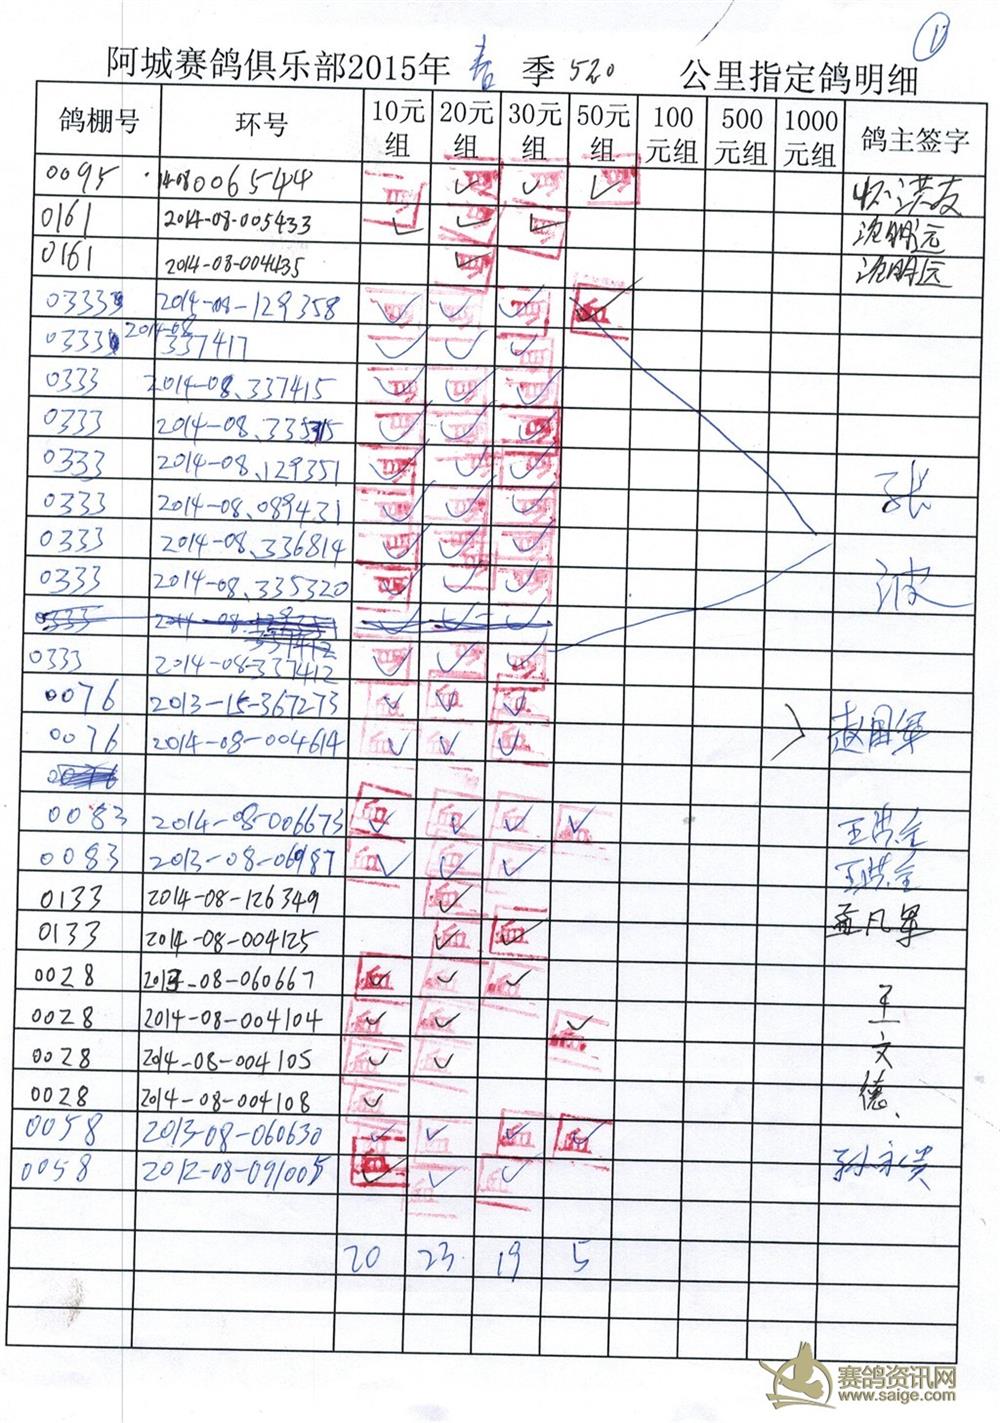 1
阿城赛鸽俱乐部2015年 春 季 520 公里指定鸽明细
鸽棚号 环号 10元组 20元组 30元组 50元组 100元组 500元组 1000元组 鸽主签字
0095 14-08 006544 ✓ ✓ ✓
0161 2014-08-005433 ✓ ✓ ✓ 沈明远
0161 2014-08-004435 ✓ 沈明远
0333 2014-08-129358 ✓ ✓ ✓ ✓
0333 2014-08 337417 ✓ ✓ ✓
0333 2014-08、337415 ✓ ✓ ✓
0333 2014-08、335315 ✓ ✓ ✓
0333 2014-08、129351 ✓ ✓ ✓
0333 2014-08、089431 ✓ ✓ ✓ 张
0333 2014-08、336814 ✓ ✓ ✓
0333 2014-08、335320 ✓ ✓ ✓ 波
0333 2014-08-337412 ✓ ✓ ✓
0076 2013-15-367273 ✓ ✓ ✓
0076 2014-08-004614 ✓ ✓ ✓ 赵国军
0083 2014-08-006673 ✓ ✓ ✓ ✓ 王洪全
0083 2013-08-06987 ✓ ✓ ✓ 王洪全
0133 2014-08-126349 ✓ 孟凡军
0133 2014-08-004125 ✓ ✓
0028 2013-08-060667 ✓ ✓ ✓
0028 2014-08-004104 ✓ ✓ ✓ 王
0028 2014-08-004105 ✓ ✓ 文
0028 2014-08-004108 ✓ 德、
0058 2013-08-060630 ✓ ✓ ✓ ✓
0058 2012-08-091005 ✓ ✓ ✓ 孙永贵
20 23 19 5
赛鸽资讯网
www.saige.com